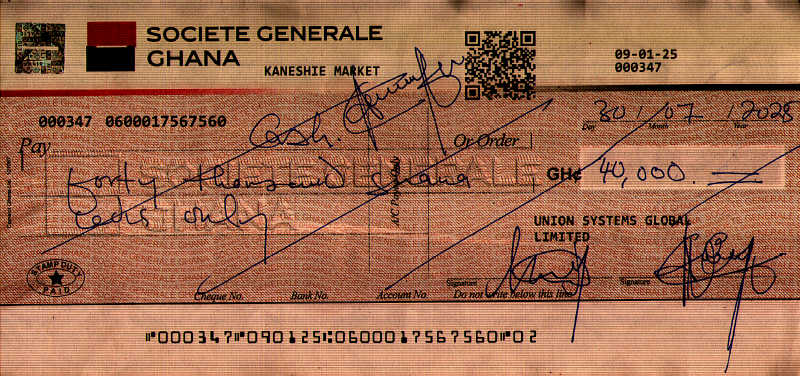 SOCIETE GENERALE
GHANA
KANESHIE MARKET
09-01-25
000347
000347 0600017567560
30/07/2028
Day Month Year
Pay Cash. Or Order
SOCIETE GENERALE
GHANA
forty thousand Ghana GH¢ 40,000.
cedis only
A/C Payee Only
UNION SYSTEMS GLOBAL
LIMITED
STAMP DUTY
PAID
Signature Signature
Cheque No. Bank No. Account No. Do not write below this line
⑈000347⑈090125⑆0600017567560⑈02